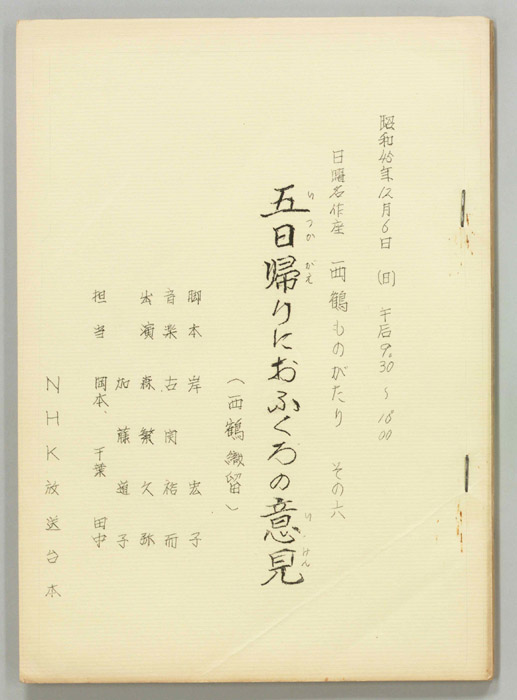 昭和45年12月6日 (日) 午后9.30〜10.00
日曜名作座 西鶴ものがたり その六
五日帰りにおふくろの意見
いつか がえ い けん
(西鶴織留)
脚本 岸 宏子
音楽 古関裕而
出演 森繁久弥
加藤道子
担当 岡本、千葉 田中
NHK放送台本